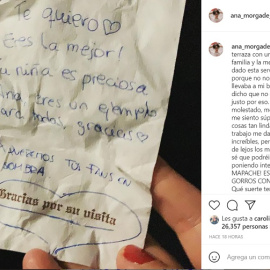 Te quiero ♡
Eres la mejor!
u niña es preciosa
eres un ejemplo
todas, gracias ♡
QUEREMOS TUS FANS EN
Gracias por su visita
ana_morgade_
ana_morgade_
terraza con un
familia y la me
dado esta serv
porque no no
llevaba a mi b
dicho que no
justo por eso.
molestado, m
me siento súp
cosas tan lind
trabajo me da
increíbles, per
de lejos los m
sé que podréi
poniendo inte
MAPACHE! ES
GORROS CON
Qué suerte te
Les gusta a caroli
26,357 personas
HACE 18 HORAS
Agrega un com